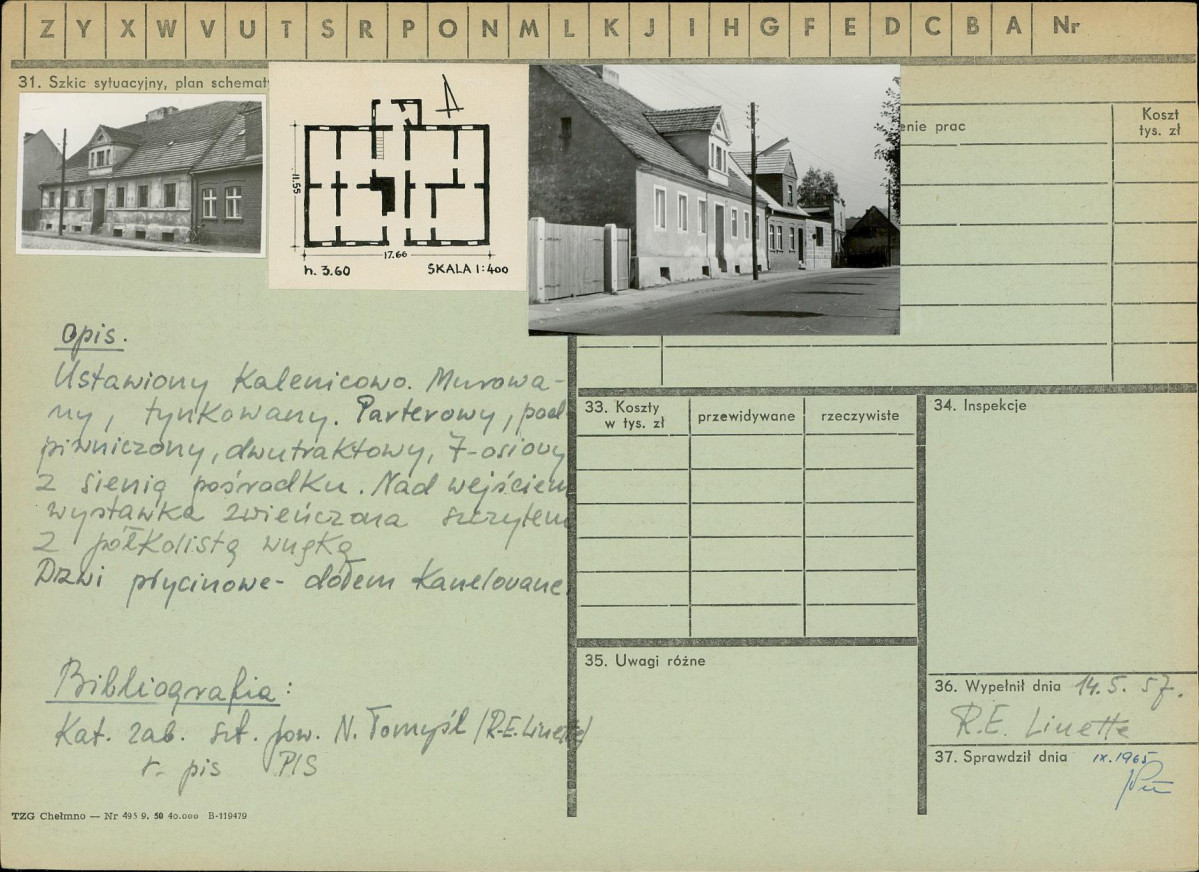 Z Y X W V U T S R P O N M L K J I H G F E D C B A Nr
31. Szkic sytuacyjny, plan schemat
11.55
17.66
h. 3.60 SKALA 1:400
enie prac
Koszt
tys. zł
Opis.
Ustawiony Kalenicowo. Murowa-
ny, tynkowany. Parterowy, pod
piwniczony, dwutraktowy, 7-osiowy
z sienią pośrodku. Nad wejściem
wystawka zwieńczona szczytem
z półkolistą wnęką
Drzwi płycinowe- dołem Kanelowane
Bibliografia:
Kat. zab. szt. pow. N. Tomyśl /R.E. Linette/
r. pis PIS
33. Koszty
w tys. zł
przewidywane
rzeczywiste
34. Inspekcje
35. Uwagi różne
36. Wypełnił dnia 14.5.57.
R.E. Linette
37. Sprawdził dnia IX.1965
TZG Chełmno — Nr 495 9. 50 40.000 B-119479